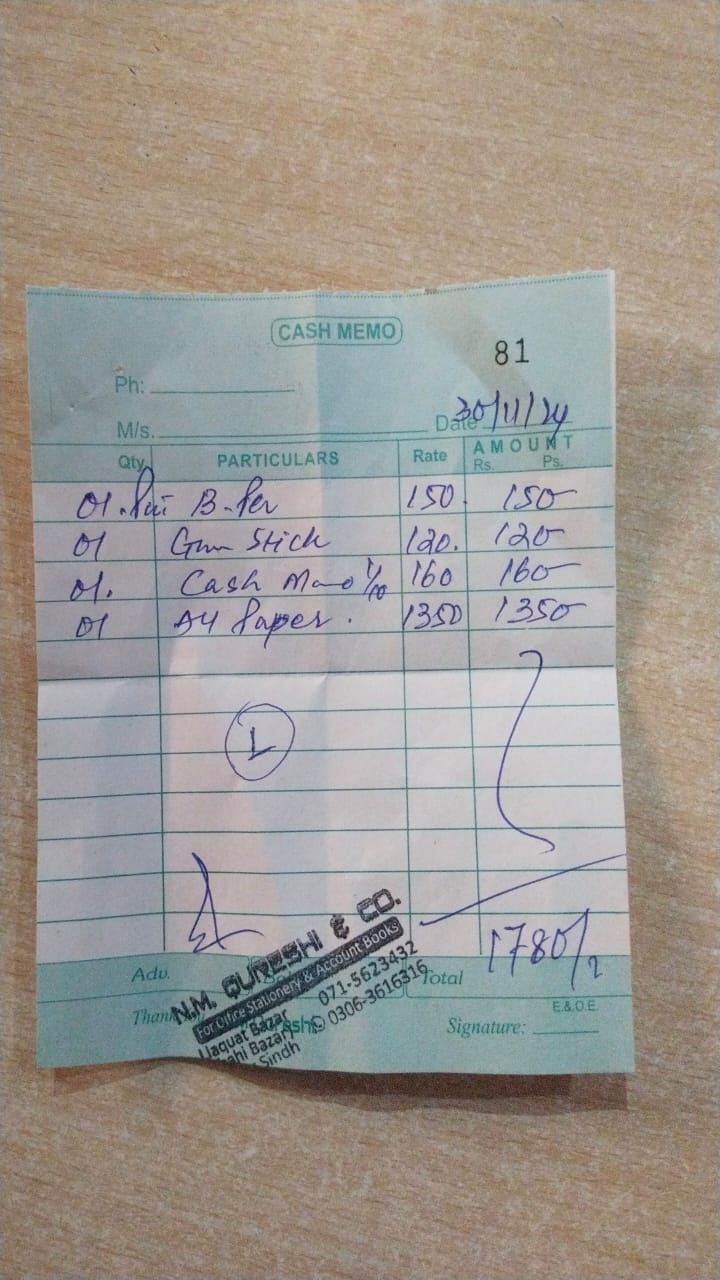 CASH MEMO
81
Ph:
M/s. Date 30/11/24
Qty. PARTICULARS Rate AMOUNT
Rs. Ps.
01. B-Per 150. 150
01 Gum Stick 120. 120
01. Cash 160 160
01 A4 Paper. 1350 1350
L
1780/
Adv. Total
N.M. QURESHI & CO.
For Office Stationery & Account Books
071-5623432
Liaquat Bazar 0306-3616316
Sindh
E.&.O.E.
Signature: